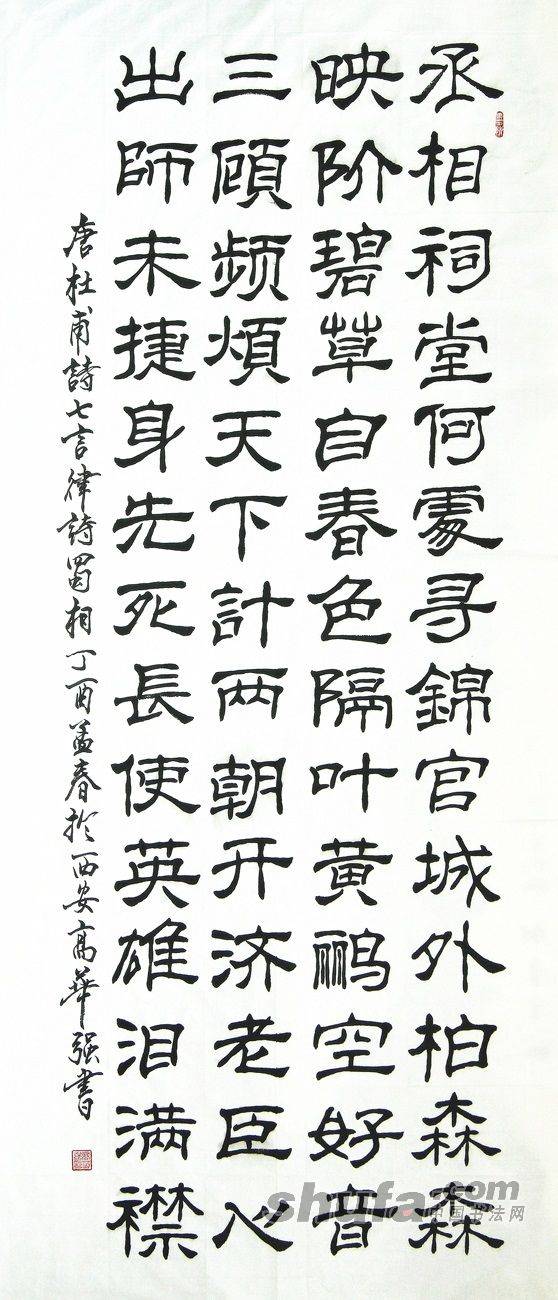 丞相祠堂何處寻錦官城外柏森森
映阶碧草自春色隔叶黄鹂空好音
三頋频煩天下計两朝开济老臣心
出師未捷身先死長使英雄泪满襟
唐杜甫詩七言律詩蜀相丁酉孟春於西安高華强書
shufa.com
中国书法网